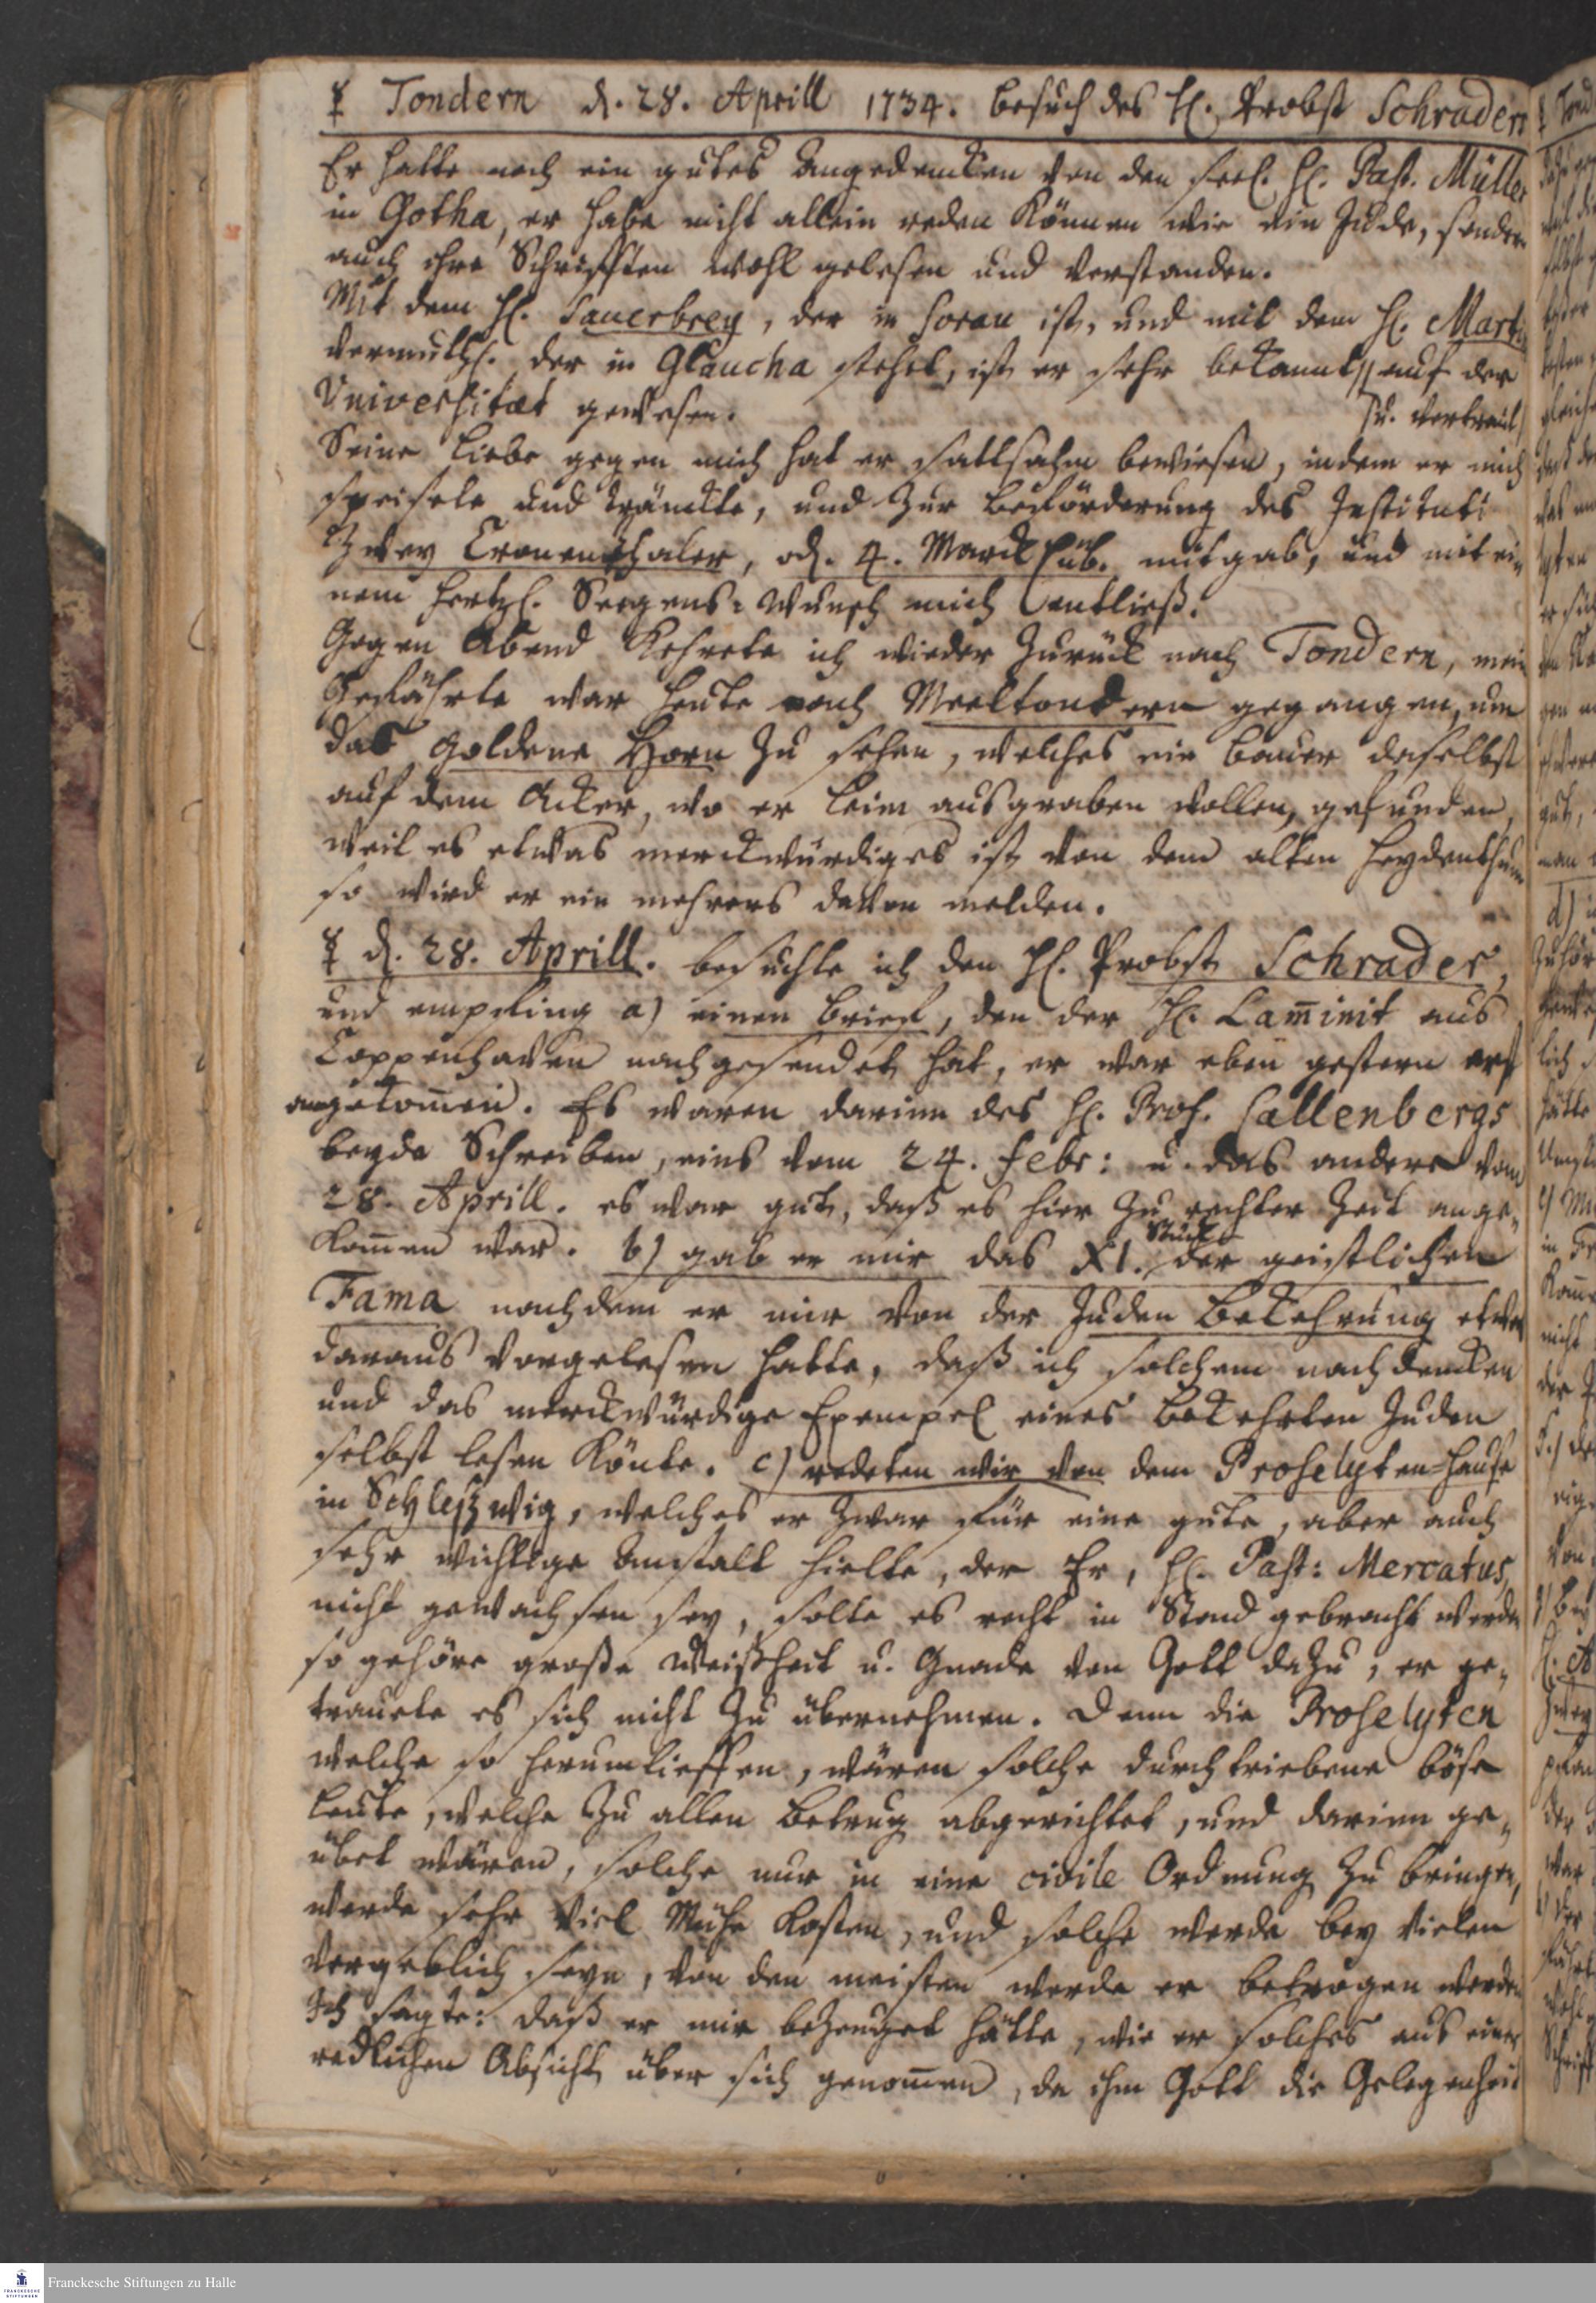 ☿ Tondern d. 28. Aprill 1734. besuch des H. Probst Schraders
Er hatte noch ein gutes Angedencken von den seel. H. Past. Müller
in Gotha, er habe nicht allein reden können wie ein Jude, sondern
auch ihre Schrifften wohl gelesen und verstanden.
Mit dem H. Sauerbrey, der in Sorau ist, und mit dem H. Martin
vermuthl. der in Glaucha stehet, ist er sehr bekannt // auf der
Universitæt gewesen.
/u. vertraut/
Seine Liebe gegen mich hat er sattsahm bewiesen, indem er mich
speisete und tränckte, und zur Beförderung des Instituti
Zwey Cronenthaler, od. 4. Marck Lüb. mitgab, und mit ei-
nem hertzl. Seegens-Wunsch mich entließ.
Gegen Abend kehrete ich wieder zurück nach Tondern, mein
Gefährte war heute nach Meeltondern gegangen, um
das goldene Horn zu sehen, welches ein Bauer daselbst
auf dem Acker, wo er Leim ausgraben wollen, gefunden,
weil es etwas merckwürdiges ist von dem alten Heydenthum
so wird er ein mehrers davon melden.
☿ d. 28. Aprill. besuchte ich den H. Probst Schrader,
und empfing a) einen Brief, den der H. Lam̅init aus
Coppenhaven nachgesendet hat, er war eben gestern erst
angekom̅en. Es waren darinn des H. Prof. Callenbergs
beyde Schreiben, eins vom 24. Febr: u. das andere vom
28. Aprill. es war gut, daß es hier zu rechter Zeit ange-
kom̅en war. b) gab er mir das XI. Stück der geistlichen
Fama nachdem er mir von der Juden Bekehrung etwas
daraus vorgelesen hatte, daß ich solchem nachdencken
und das merckwürdige Exempel eines bekehrten Juden
selbst lesen könte. c) redeten wir von dem Proselyten-Hause
in Schleßwig, welches er zwar für eine gute, aber auch
sehr wichtige Anstalt hielte, der Er, H. Past: Mercatus,
nicht gewachsen sey, solte es recht in Stand gebracht werden
so gehöre große Weißheit u. Gnade von Gott dazu, er ge-
trauete es sich nicht zu übernehmen. Denn die Proselyten
welche so herumlieffen, wären solche durchtriebene böse
Leute, welche zu allen Betrug abgerichtet, und darinn ge-
übet wären, solche nur in eine civile Ordnung zu bringen,
werde sehr viel Mühe kosten, und solche werde bey vielen
vergeblich seyn, von den meisten werde er betrogen werden
Ich sagte: daß er mir bezeuget hätte, wie er solches aus einer
redlichen Absicht über sich genom̅en, da ihm Gott die Gelegenheit
Franckesche Stiftungen zu Halle